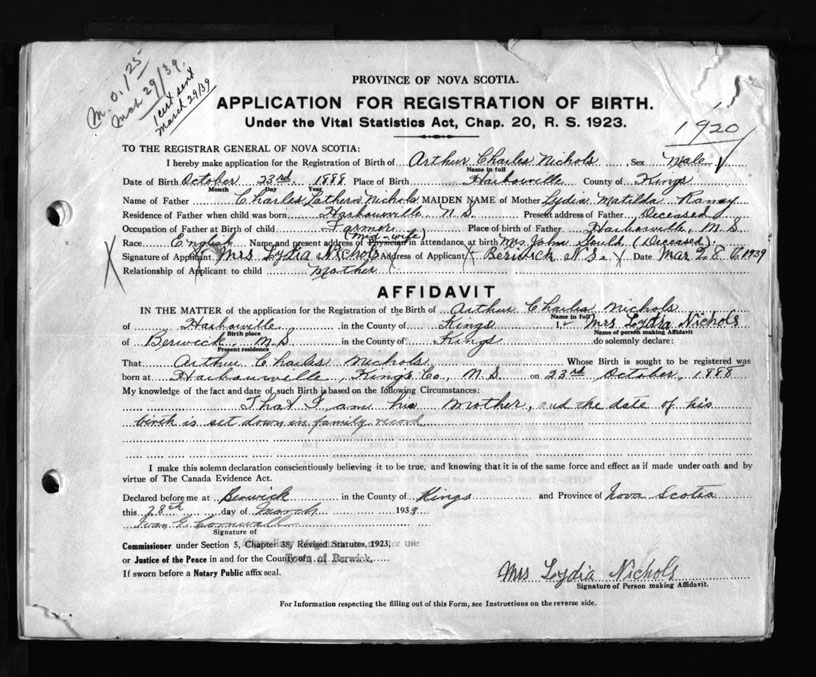 M.O. 1.25
Mar 29/39.
1 cert sent
March 29/39
PROVINCE OF NOVA SCOTIA.
APPLICATION FOR REGISTRATION OF BIRTH.
Under the Vital Statistics Act, Chap. 20, R. S. 1923.
1920
TO THE REGISTRAR GENERAL OF NOVA SCOTIA:
I hereby make application for the Registration of Birth of Arthur Charles Nichols Sex Male
Name in full
Date of Birth October 23rd 1888 Place of Birth Harbourville County of Kings
Month Day Year
Name of Father Charles Lathern Nichols MAIDEN NAME of Mother Lydia Matilda Ramey
Residence of Father when child was born Harbourville N.S. Present address of Father Deceased
Occupation of Father at Birth of child Farmer Place of birth of Father Harbourville, N.S.
(Mid-wife)
Race English Name and present address of Physician in attendance at birth Mrs John Gould (Deceased)
Signature of Applicant X Mrs Lydia Nichols X Address of Applicant X Berwick N.S. X Date Mar 28 1939
Relationship of Applicant to child Mother
AFFIDAVIT
IN THE MATTER of the application for the Registration of the Birth of Arthur Charles Nichols
Name in full
of Harbourville in the County of Kings I, Mrs Lydia Nichols
Birth place Name of person making Affidavit
of Berwick, N.S. in the County of Kings do solemnly declare:
Present residence
That Arthur Charles Nichols Whose Birth is sought to be registered was
born at Harbourville, Kings Co., N.S. on 23rd October, 1888
My knowledge of the fact and date of such Birth is based on the following Circumstances:
That I am his Mother, and the date of his
birth is set down in family record
I make this solemn declaration conscientiously believing it to be true, and knowing that it is of the same force and effect as if made under oath and by
virtue of The Canada Evidence Act.
Declared before me at Berwick in the County of Kings and Province of Nova Scotia
this 28th day of March 1939
Ivan E. Cornwall
Signature of
Commissioner under Section 5, Chapter 38, Revised Statutes, 1923, for use
or Justice of the Peace in and for the County of Town of Berwick,
If sworn before a Notary Public affix seal.
Mrs Lydia Nichols
Signature of Person making Affidavit.
For Information respecting the filling out of this Form, see Instructions on the reverse side.